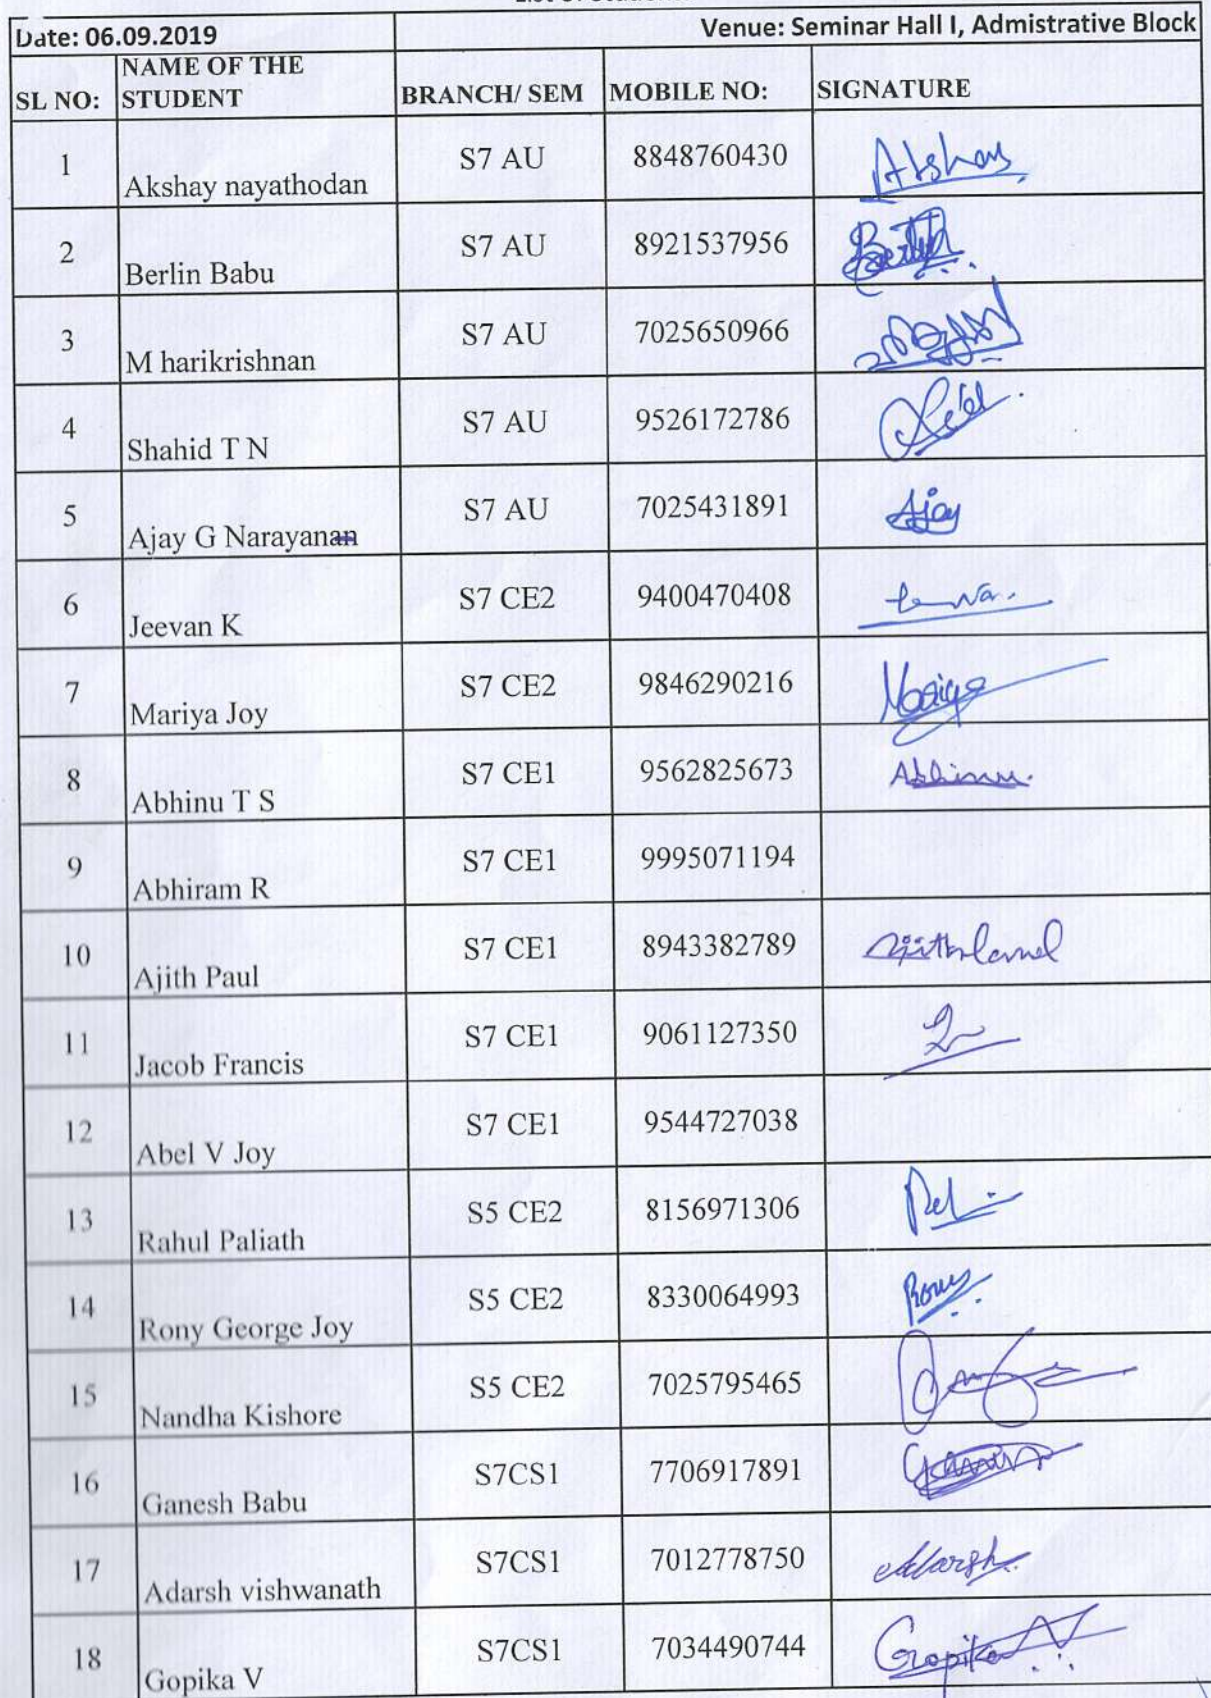 Date: 06.09.2019 Venue: Seminar Hall I, Admistrative Block
SL NO: NAME OF THE STUDENT BRANCH/ SEM MOBILE NO: SIGNATURE
1 Akshay nayathodan S7 AU 8848760430 Akshay
2 Berlin Babu S7 AU 8921537956 Berlin
3 M harikrishnan S7 AU 7025650966
4 Shahid T N S7 AU 9526172786
5 Ajay G Narayanan S7 AU 7025431891 Ajay
6 Jeevan K S7 CE2 9400470408
7 Mariya Joy S7 CE2 9846290216 Mariya
8 Abhinu T S S7 CE1 9562825673 Abhinu
9 Abhiram R S7 CE1 9995071194
10 Ajith Paul S7 CE1 8943382789
11 Jacob Francis S7 CE1 9061127350
12 Abel V Joy S7 CE1 9544727038
13 Rahul Paliath S5 CE2 8156971306
14 Rony George Joy S5 CE2 8330064993 Rony
15 Nandha Kishore S5 CE2 7025795465
16 Ganesh Babu S7CS1 7706917891
17 Adarsh vishwanath S7CS1 7012778750 Adarsh
18 Gopika V S7CS1 7034490744 Gopika V